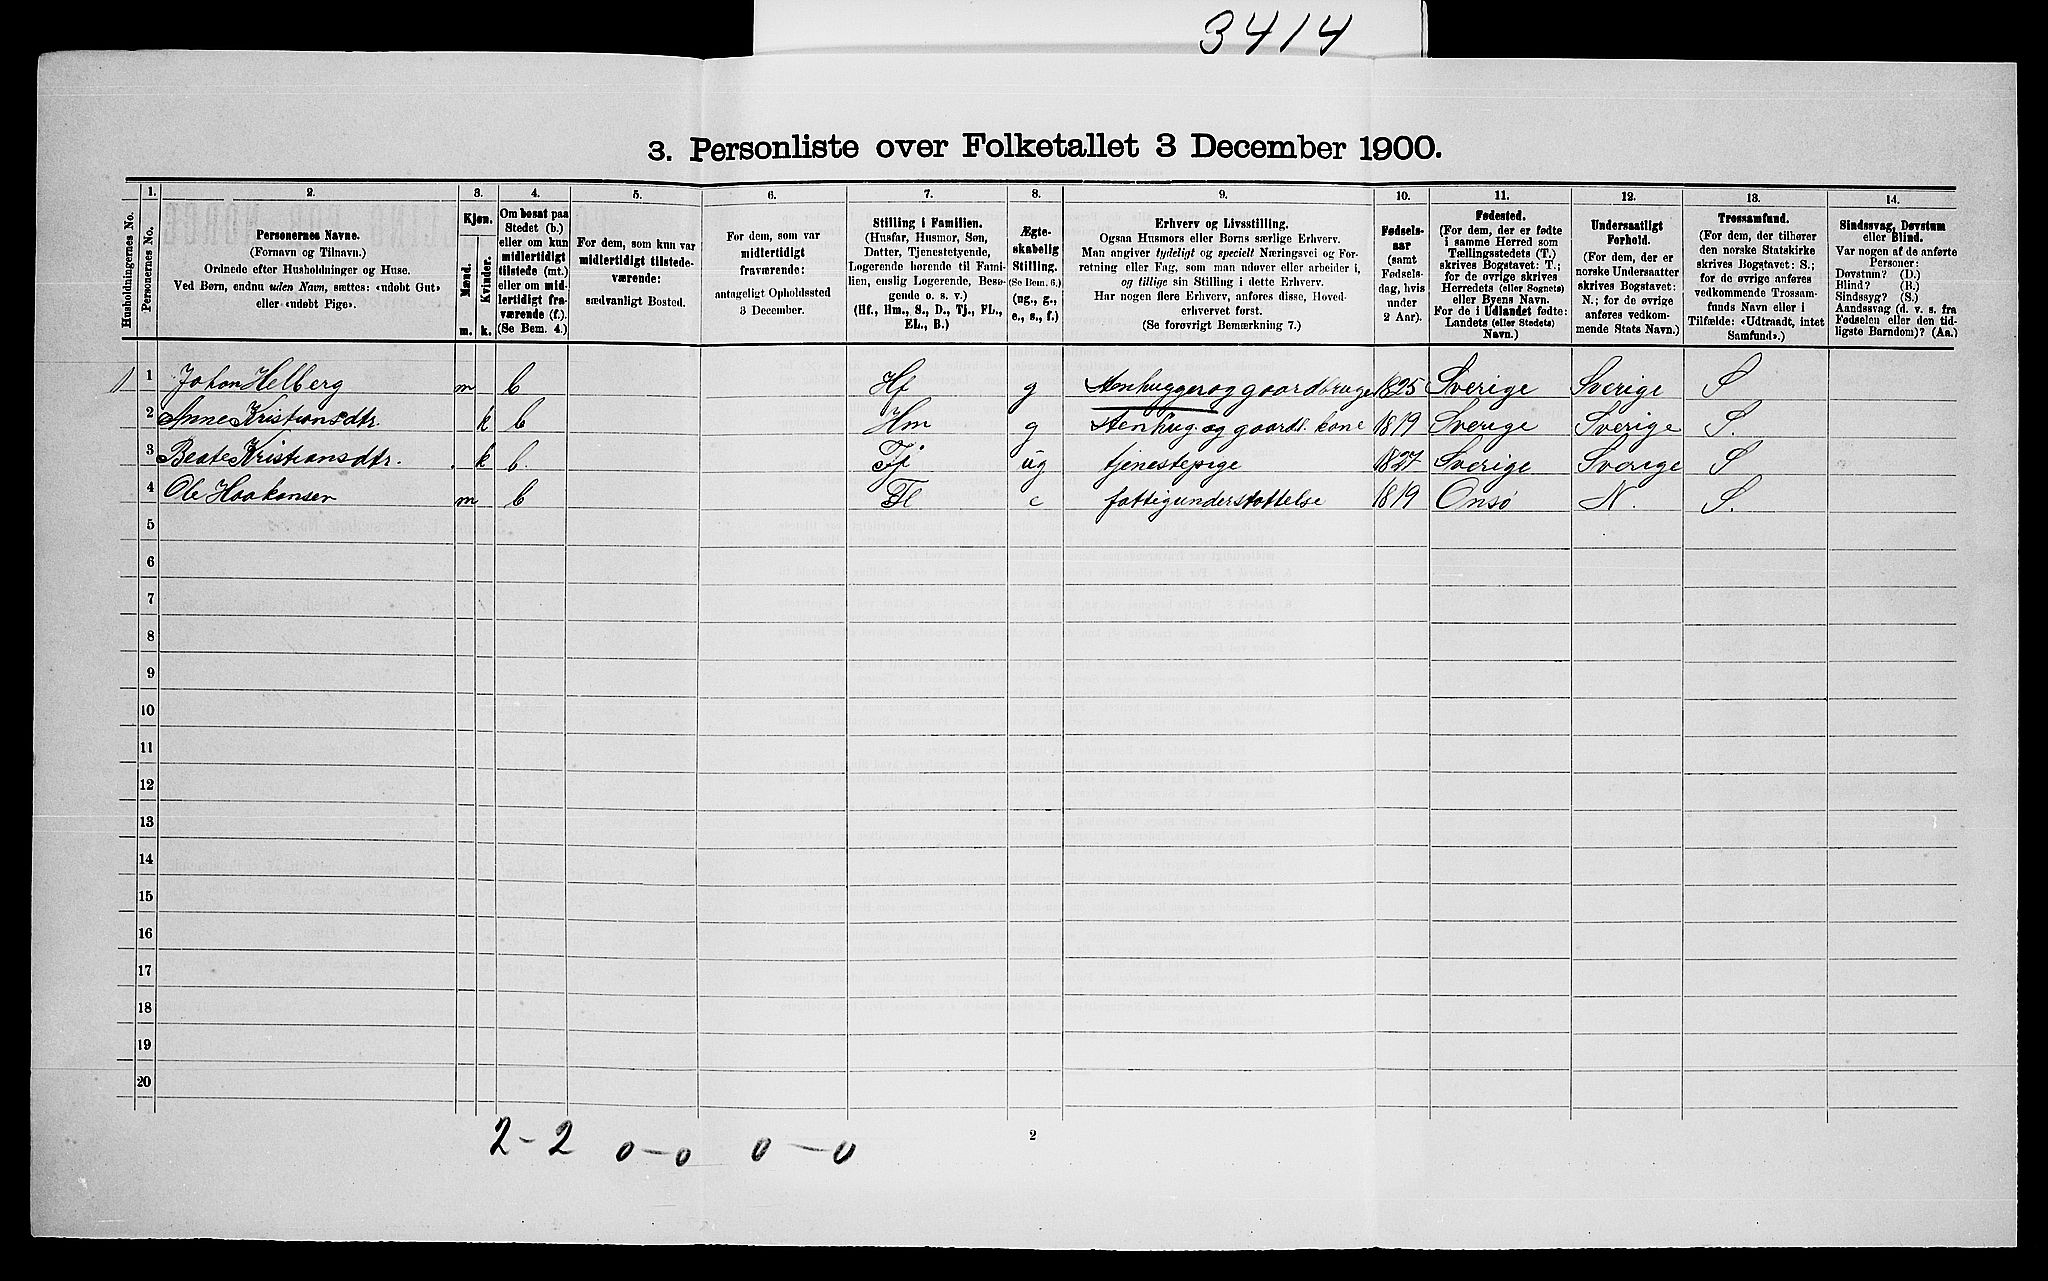 3414
3. Personliste over Folketallet 3 December 1900.
Husholdningernes No.
1.
Personernes No.
2.
Personernes Navne.
(Fornavn og Tilnavn.)
Ordnede efter Husholdninger og Huse.
Ved Børn, endnu uden Navn, sættes: «udøbt Gut»
eller «udøbt Pige».
3.
Kjøn.
Mænd.
Kvinder.
m.
k.
4.
Om bosat paa
Stedet (b.)
eller om kun
midlertidigt
tilstede (mt.)
eller om mid-
lertidigt fra-
værende (f.)
(Se Bem. 4.)
5.
For dem, som kun var
midlertidigt tilstede-
værende:
sædvanligt Bosted.
6.
For dem, som var
midlertidigt
fraværende:
antageligt Opholdssted
3 December.
7.
Stilling i Familien.
(Husfar, Husmor, Søn,
Datter, Tjenestetyende,
Logerende hørende til Fami-
lien, enslig Logerende, Besø-
gende o. s. v.)
(Hf., Hm., S., D., Tj., FL.,
EL., B.)
8.
Ægte-
skabelig
Stilling.
(Se Bem. 6.)
(ug., g.,
e., s., f.)
9.
Erhverv og Livsstilling.
Ogsaa Husmors eller Børns særlige Erhverv.
Man angiver tydeligt og specielt Næringsvei og For-
retning eller Fag, som man udøver eller arbeider i,
og tillige sin Stilling i dette Erhverv.
Har nogen flere Erhverv, anføres disse, Hoved-
erhvervet først.
(Se forøvrigt Bemærkning 7.)
10.
Fødsels-
aar
(samt
Fødsels-
dag, hvis
under
2 Aar).
11.
Fødested.
(For dem, der er fødte
i samme Herred som
Tællingsstedets (T.)
skrives Bogstavet: T.;
for de øvrige skrives
Herredets (eller Sognets)
eller Byens Navn.
For de i Udlandet fødte:
Landets (eller Stedets)
Navn.)
12.
Undersaatligt
Forhold.
(For dem, der er
norske Undersaatter
skrives Bogstavet:
N.; for de øvrige
anføres vedkom-
mende Stats Navn.)
13.
Trossamfund.
(For dem, der tilhører
den norske Statskirke
skrives Bogstavet: S.;
for de øvrige anføres
vedkommende Trossam-
funds Navn eller i
Tilfælde: «Udtraadt, intet
Samfund».)
14.
Sindssvag, Døvstum
eller Blind.
Var nogen af de anførte
Personer:
Døvstum? (D.)
Blind? (B.)
Sindssyg? (S.)
Aandssvag (d. v. s. fra
Fødselen eller den tid-
ligste Barndom)? (Aa.)
1 1 Johan Helberg m b Hf g Stenhugger og gaardbruger 1825 Sverige Sverige S
2 Anne Kristiansdtr. k b Hm g Stenhug. og gaardb. kone 1819 Sverige Sverige S.
3 Beate Kristiansdtr. k b. Tj ug tjenestepige 1827 Sverige Sverige S
4 Ole Haakonsen m b Fl e fattigunderstøttelse 1819 Onsø N. S.
5
6
7
8
9
10
11
12
13
14
15
16
17
18
19
20
2-2 0-0 0-0
2